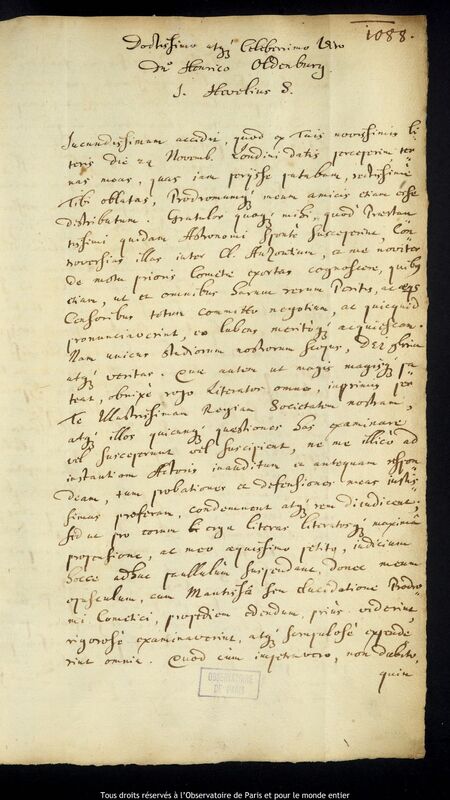 1088.
Doctissimo atq́ʒ Celeberrimo Viro
Dnō Henrico Oldenburg.
J. Hevelius S.
Jucundissimum accidit, quod ex Tuis novissimis li
teris die 24 Novemb. Londini datis perceperim ter
nas meas, quas iam perijsse putabam, rectissimè
Tibi oblatas, Prodromumq́ʒ meum amicis etiam esse
distributum. Gratulor quoqʒ mihi, quod Præstan
tissimi quidam Astronomi sponte susceperint, Con
troversias illas inter Cl. Auzoutium, et me noviter
de motu prioris Cometæ exortas cognoscere, quibʒ
etiam, ut et omnibus harum rerum Peritis, ac æqs
Censoribus totum committo negotium, ac quicquid
pronunciaverint, eo lubens meritoq́ʒ acquiescam.
Nam unicus studiorum nostrorum scopus, DEI gloria
atq́ʒ veritas. Quæ autem ut magis magisq́ʒ pa
teat, obnixè rogo Literatos omnes, inprimis per
Te Illustrissimam Regiam Societatem nostram,
atq́ʒ illos quicunqʒ quæstiones has examinare
vel susceperunt vel suscipient, ne me illico ad
instantiam Actoris inauditum et antequam respon
deam, tum probationes et defensiones meas iustis
simas proferam, condemnent atq́ʒ rem diiudicent;
sed ut pro eorum erga literas literatosq́ʒ maxima
propensione, ac meo æquissimo petito, iudicium
hocce adhuc paullulum suspendant, donec meum
opusculum, cum Mantissâ seu elucidatione Prodro
mi Cometici, propediem edendum, prius viderint,
rigorosè examinaverint, atq́ʒ scrupulosè expende
rint omnia. Quod cum impetravero, non dubito,
quin
OBSERVATOIRE
DE PARIS
Tous droits réservés à l'Observatoire de Paris et pour le monde entier